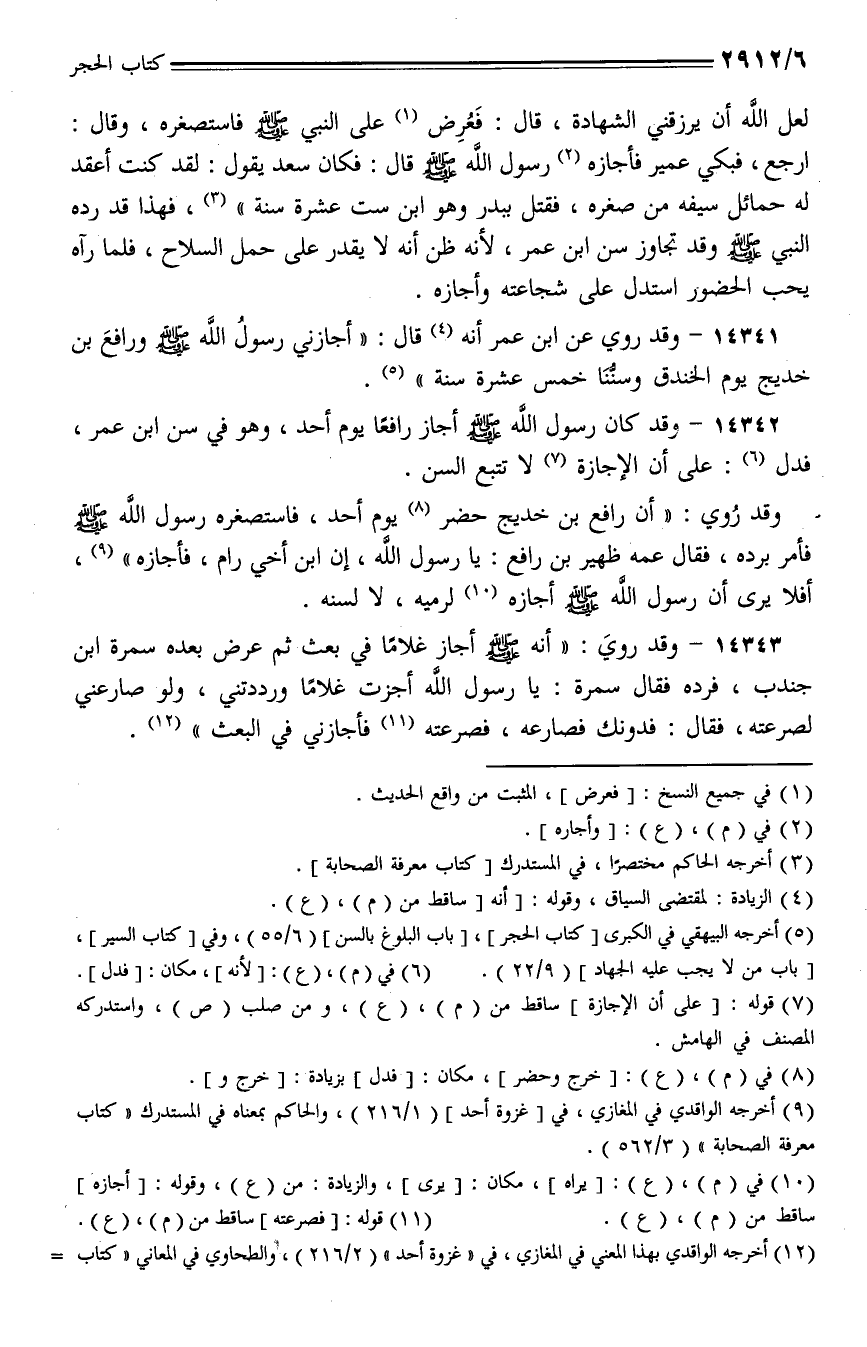 ٢٩١٢/٦ كتاب الحجر
لعل اللَّه أن يرزقني الشهادة ، قال : فَعُرِض (١) على النبي ﷺ فاستصغره ، وقال :
ارجع ، فبكي عمير فأجازه (٢) رسول اللَّه ﷺ قال : فكان سعد يقول : لقد كنت أعقد
له حمائل سيفه من صغره ، فقتل ببدر وهو ابن ست عشرة سنة » (٣) ، فهذا قد رده
النبي ﷺ وقد تجاوز سن ابن عمر ، لأنه ظن أنه لا يقدر على حمل السلاح ، فلما رآه
يحب الحضور استدل على شجاعته وأجازه .
١٤٣٤١ – وقد روي عن ابن عمر أنه (٤) قال : « أجازني رسولُ اللَّه ﷺ ورافعَ بن
خديج يوم الخندق وسنُّنَا خمس عشرة سنة » (٥) .
١٤٣٤٢ – وقد كان رسول اللَّه ﷺ أجاز رافعًا يوم أحد ، وهو في سن ابن عمر ،
فدل (٦) : على أن الإجازة (٧) لا تتبع السن .
وقد رُوي : « أن رافع بن خديج حضر (٨) يوم أحد ، فاستصغره رسول اللَّه ﷺ
فأمر برده ، فقال عمه ظهير بن رافع : يا رسول اللَّه ، إن ابن أخي رام ، فأجازه» (٩) ،
أفلا يرى أن رسول اللَّه ﷺ أجازه (١٠) لرميه ، لا لسنه .
١٤٣٤٣ – وقد رويَ : « أنه ﷺ أجاز غلامًا في بعث ثم عرض بعده سمرة ابن
جندب ، فرده فقال سمرة : يا رسول اللَّه أجزت غلامًا ورددتني ، ولو صارعني
لصرعته ، فقال : فدونك فصارعه ، فصرعته (١١) فأجازني في البعث » (١٢) .
(١) في جميع النسخ : [ فعرض ] ، المثبت من واقع الحديث .
(٢) في ( م ) ، ( ع ) : [ وأجاره ] .
(٣) أخرجه الحاكم مختصرًا ، في المستدرك [ كتاب معرفة الصحابة ] .
(٤) الزيادة : لمقتضى السياق ، وقوله : [ أنه [ ساقط من ( م ) ، ( ع ) .
(٥) أخرجه البيهقي في الكبرى [ كتاب الحجر ] ، [ باب البلوغ بالسن ] ( ٥٥/٦ ) ، وفي [ كتاب السير ] ،
[ باب من لا يجب عليه الجهاد ] ( ٢٢/٩ ) . (٦) في ( م ) ، ( ع ) : [ لأنه ] ، مكان : [ فدل ] .
(٧) قوله : [ على أن الإجازة ] ساقط من ( م ) ، ( ع ) ، و من صلب ( ص ) ، واستدركه
المصنف في الهامش .
(٨) في ( م ) ، ( ع ) : [ خرج وحضر ] ، مكان : [ فدل ] بزيادة : [ خرج و ] .
(٩) أخرجه الواقدي في المغازي ، في [ غزوة أحد ] ( ٢١٦/١ ) ، والحاكم بمعناه في المستدرك « كتاب
معرفة الصحابة » ( ٥٦٢/٣ ) .
(١٠) في ( م ) ، ( ع ) : [ يراه ] ، مكان : [ يرى ] ، والزيادة : من ( ع ) ، وقوله : [ أجازه ]
ساقط من ( م ) ، ( ع ) . (١١) قوله : [ فصرعته ] ساقط من ( م ) ، ( ع ) .
(١٢) أخرجه الواقدي بهذا المعني في المغازي ، في « غزوة أحد » ( ٢١٦/٢ ) ، والطحاوي في المعاني « كتاب =